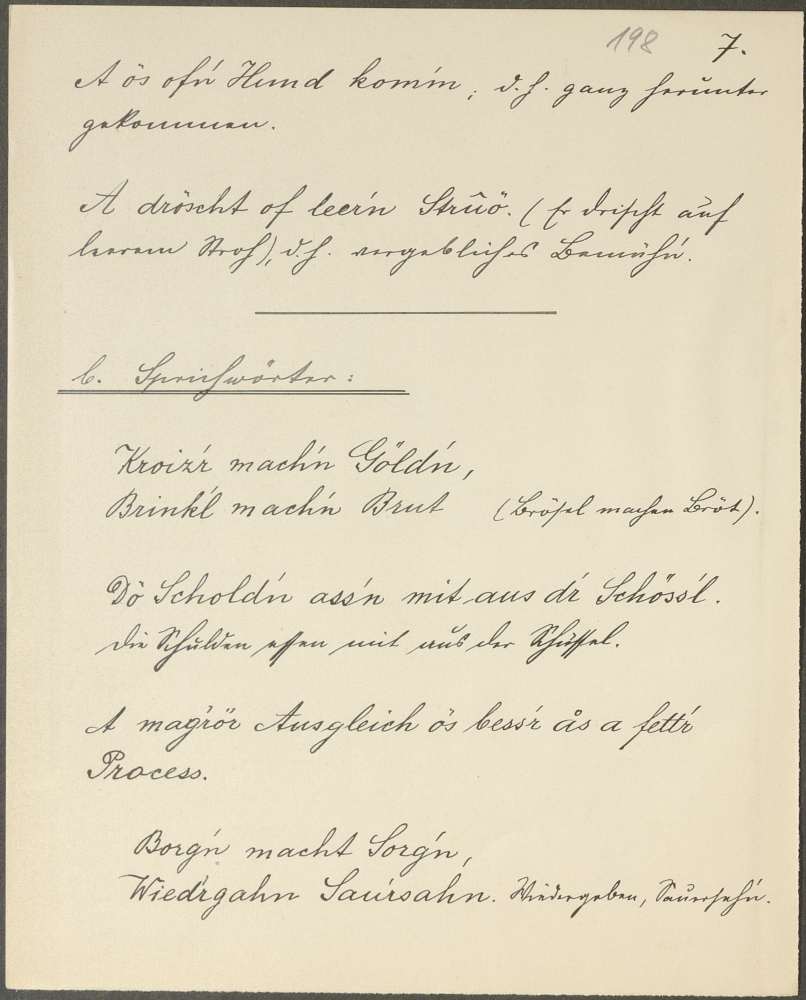 198 7.
A ös ofń Hund komḿn, d. h. ganz herunter
gekommen.
A dröscht of leeŕn Strûö. (Er drischt auf
leerem Stroh), d. h. vergebliches Bemühń.
b. Sprichwörter:
Kroiźr macḣn Göldń,
Brinḱl macḣn Brut (Brösel machen Brot).
Dö Scholdń asśn mit aus dŕ Schösśl.
Die Schulden essen mit aus der Schüssel.
A maǵrör Ausgleich ös besśr ås a fettŕ
Process.
Borǵn macht Sorǵn,
Wied́rgahn Saúrsahn. Wiedergeben, Sauersehń.